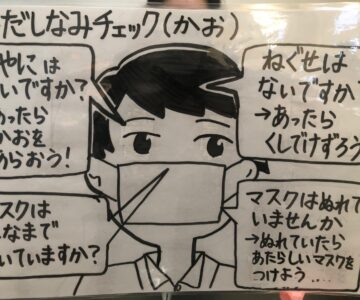 だしなみチェック(かお)
やには
いですか?
あったら
かおを
あらおう!
ねぐせは
ないですか?
→あったら
くしでけずろう
スクは
なまで
いていますか?
マスクはぬれて
いませんか
→ぬれていたら
あたらしいマスクを
つけよう....